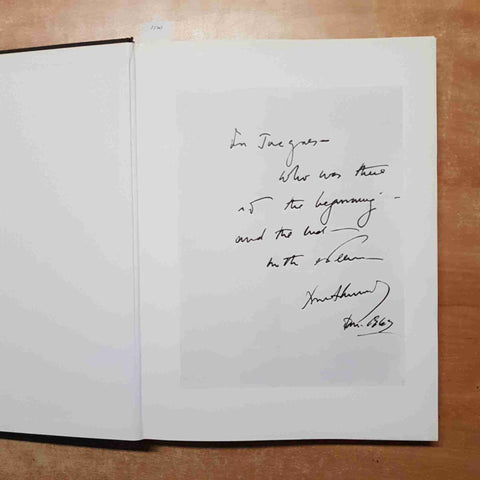 For Jacques —
who was there
at the beginning —
and the end —
with esteem
Dec. 1967